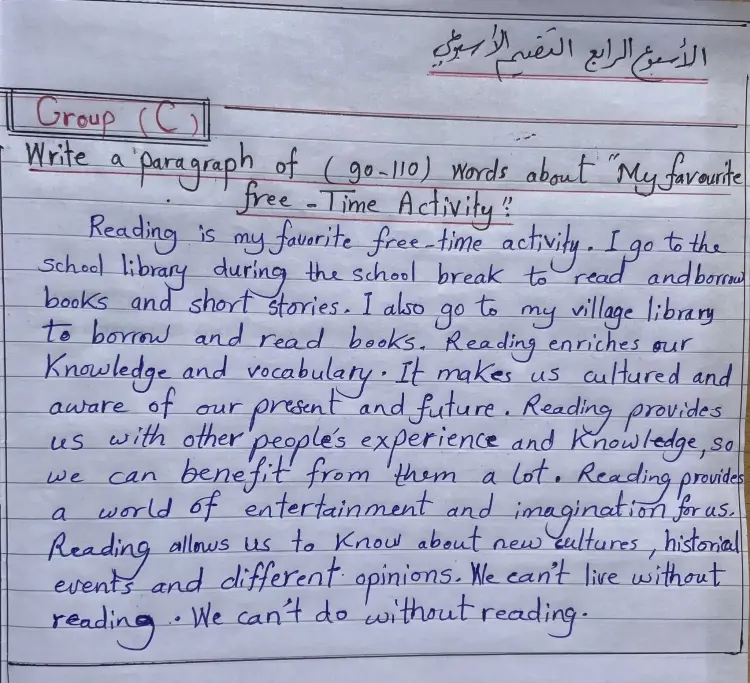 الأسبوع الرابع التقييم الأسبوعي
Group (C)
Write a paragraph of (90-110) words about "My favourite
free-Time Activity"
Reading is my favorite free-time activity. I go to the
school library during the school break to read and borrow
books and short stories. I also go to my village library
to borrow and read books. Reading enriches our
Knowledge and vocabulary. It makes us cultured and
aware of our present and future. Reading provides
us with other people's experience and Knowledge, so
we can benefit from them a lot. Reading provides
a world of entertainment and imagination for us.
Reading allows us to Know about new cultures, historial
events and different opinions. We can't live without
reading. We can't do without reading.